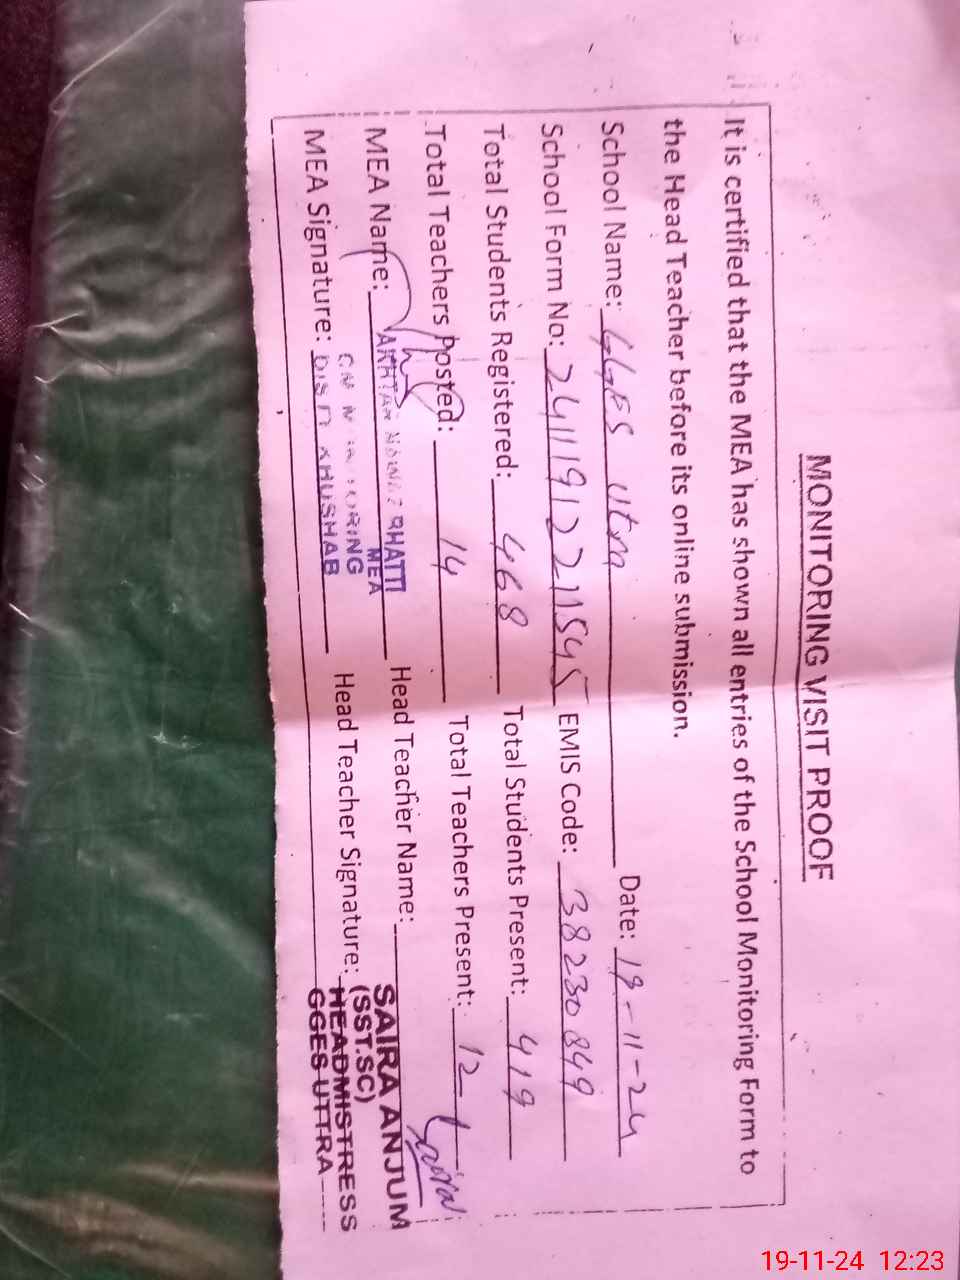 MONITORING VISIT PROOF
It is certified that the MEA has shown all entries of the School Monitoring Form to
the Head Teacher before its online submission.
School Name: GGES Utra Date: 19-11-24
School Form No: 2411912211545 EMIS Code: 38230849
Total Students Registered: 468 Total Students Present: 419
Total Teachers Posted: 14 Total Teachers Present: 12
MEA Name: AKHTAR NAWAZ BHATTI Head Teacher Name: SAIRA ANJUM
MEA (SST.SC)
MEA Signature: DISTT KHUSHAB Head Teacher Signature: HEADMISTRESS
GGES UTTRA
19-11-24 12:23